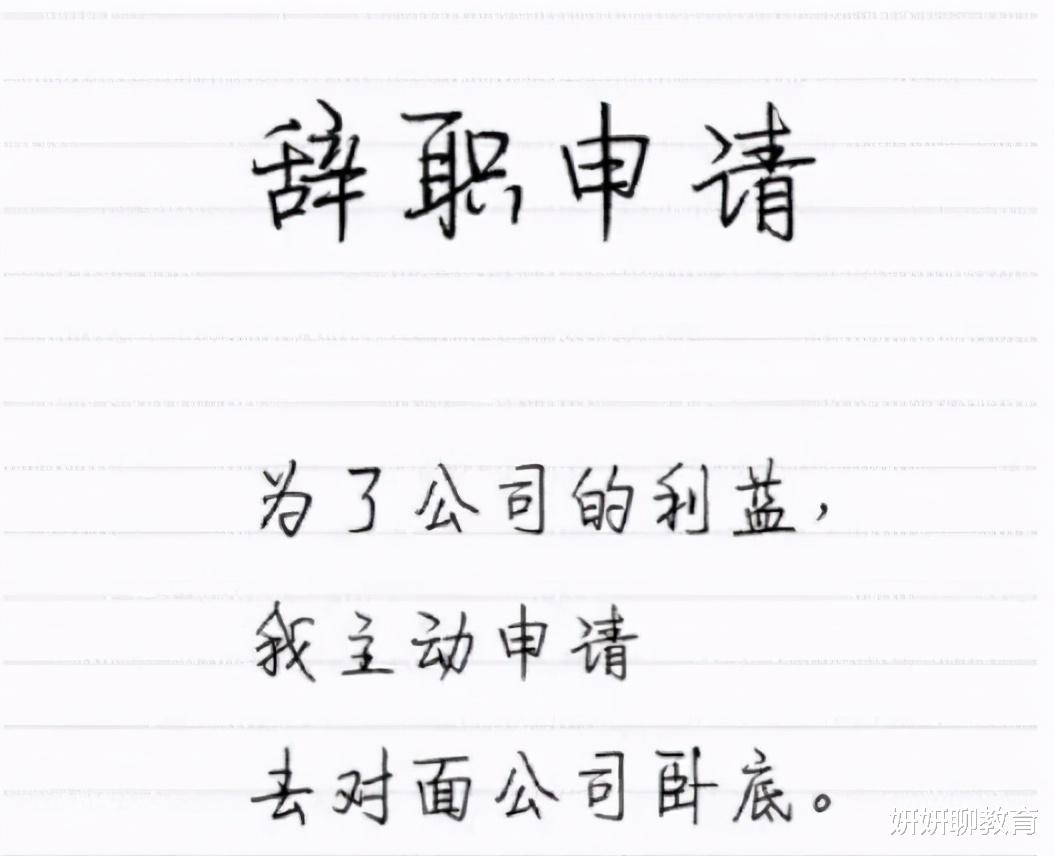 辞职申请
为了公司的利益，
我主动申请
去对面公司卧底。
妍妍聊教育